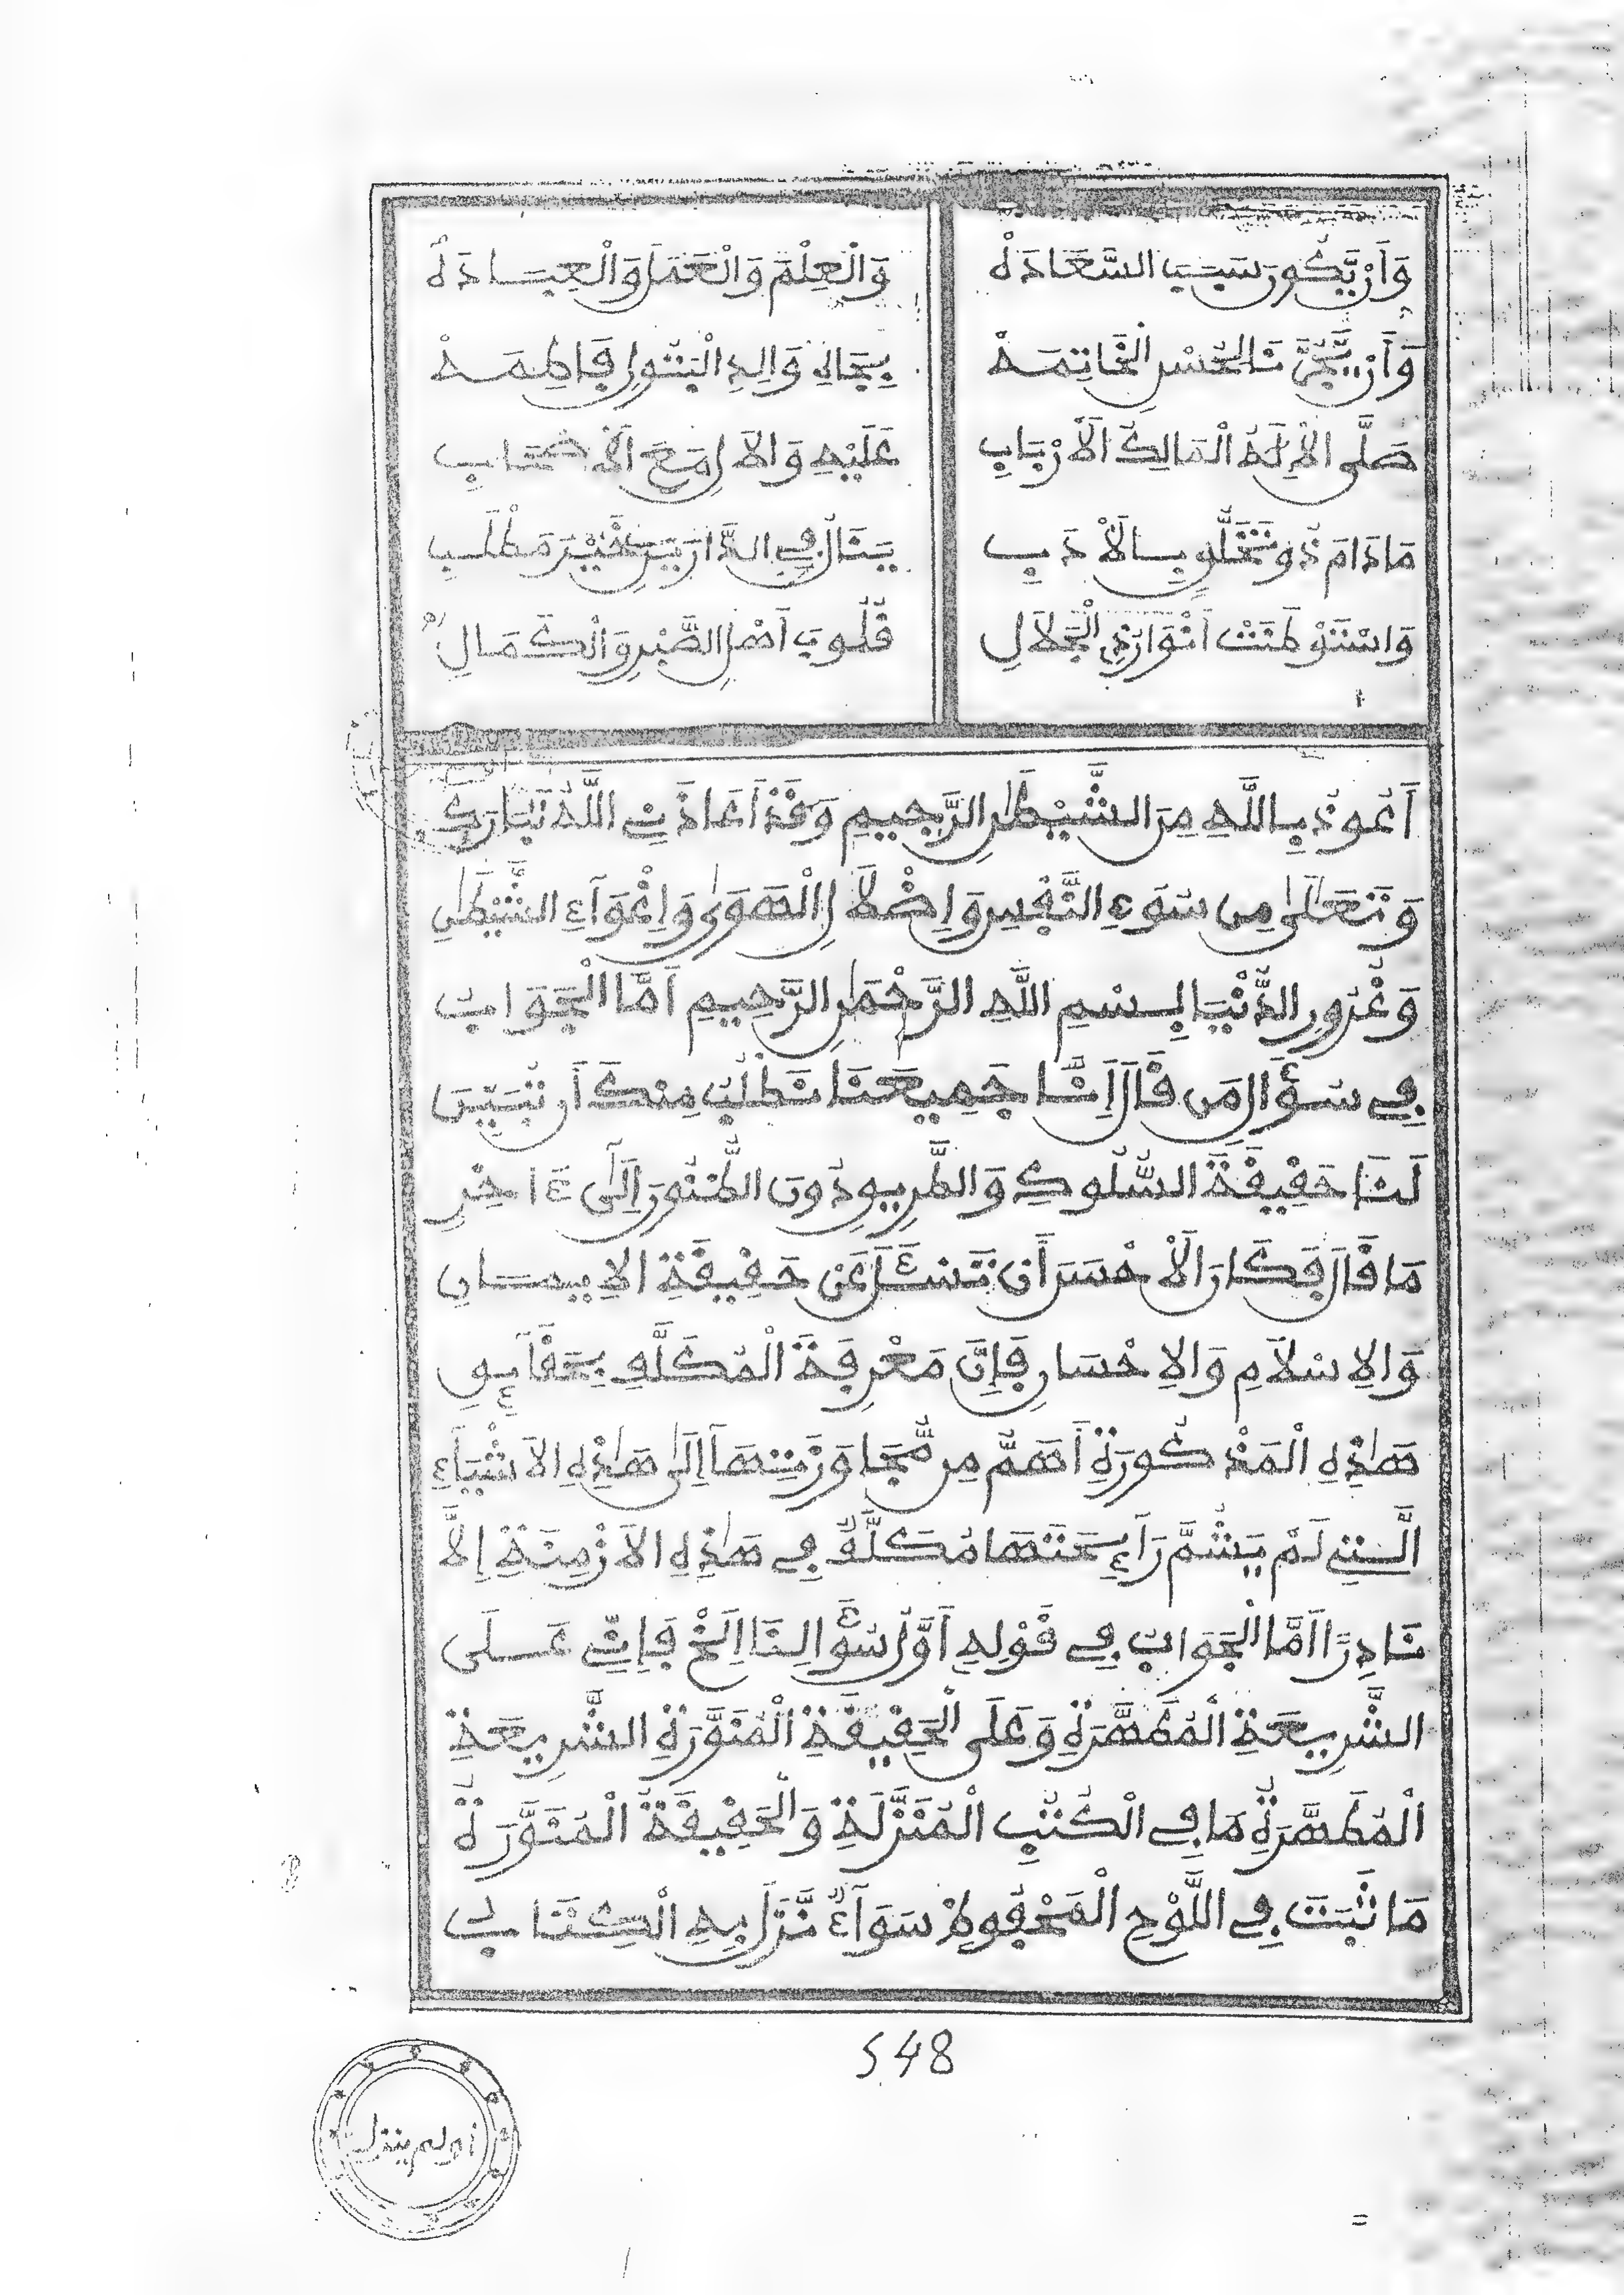 وَأَنْ يَّكُونَ سَبَبَ السَّعَادَهْ وَالْعِلْمَ وَالْعَمَلَ وَالْعِبَادَهْ
وَأَنْ يَّجُرَّنَا لِحُسْنِ الْخَاتِمَهْ بِجَاهِ وَالِدِ الْبَتُولِ فَاطِمَهْ
صَلَّى الْإِلَهُ الْمَالِكُ الْأَرْبَابِ عَلَيْهِ وَالْآلِ مَعَ الْأَصْحَابِ
مَا دَامَ ذُو تَخَلُّقٍ بِالْأَدَبِ يَنَالُ فِي الدَّارَيْنِ خَيْرَ مَطْلَبِ
وَاسْتَوْطَنَتْ أَنْوَارُ ذِي الْجَلَالِ قُلُوبَ أَهْلِ الصَّبْرِ وَالْكَمَالِ
أَعُوذُ بِاللَّهِ مِنَ الشَّيْطَٰنِ الرَّجِيمِ وَقَدْ أَعَاذَنِي اللَّهُ تَبَارَكَ
وَتَعَالَىٰ مِن سُوءِ النَّفْسِ وَإِضْلَالِ الْهَوَىٰ وَإِغْوَاءِ الشَّيْطَٰنِ
وَغُرُورِ الدُّنْيَا بِسْمِ اللَّهِ الرَّحْمَٰنِ الرَّحِيمِ أَمَّا الْجَوَابُ
فِي سُؤَالِ مَن قَالَ إِنَّا جَمِيعَنَا نَطْلُبُ مِنكَ أَن تُبَيِّنَ
لَنَا حَقِيقَةَ السُّلُوكِ وَالطَّرِيقِ دُونَ الظُّهُورِ إِلَىٰ ءَاخِرِ
مَا قَالَ فَكَانَ الْأَحْسَنَ أَن تَسْئَلَ عَنْ حَقِيقَةِ الْإِيمَانِ
وَالْإِسْلَامِ وَالْإِحْسَانِ فَإِنَّ مَعْرِفَةَ الْمُكَلَّفِ بِحَقَائِقِ
هَٰذِهِ الْمَذْكُورَةِ أَهَمُّ مِن مُّجَاوَزَتِهَا إِلَىٰ هَٰذِهِ الْأَشْيَاءِ
الَّتِي لَمْ يَشُمَّ رَائِحَتَهَا مُكَلَّفٌ فِي هَٰذِهِ الْأَزْمِنَةِ إِلَّا
نَادِرًا أَمَّا الْجَوَابُ فِي قَوْلِهِ أَوَّلُ سُؤَالِنَا إِلَخْ فَإِنِّي عَلَى
الشَّرِيعَةِ الْمُطَهَّرَةِ وَعَلَى الْحَقِيقَةِ الْمُنَوَّرَةِ الشَّرِيعَةِ
الْمُطَهَّرَةُ مَا فِي الْكُتُبِ الْمُنَزَّلَةِ وَالْحَقِيقَةُ الْمُنَوَّرَةُ
مَا ثَبَتَ فِي اللَّوْحِ الْمَحْفُوظِ سَوَاءٌ نَّزَلَ بِهِ الْكِتَابُ
548